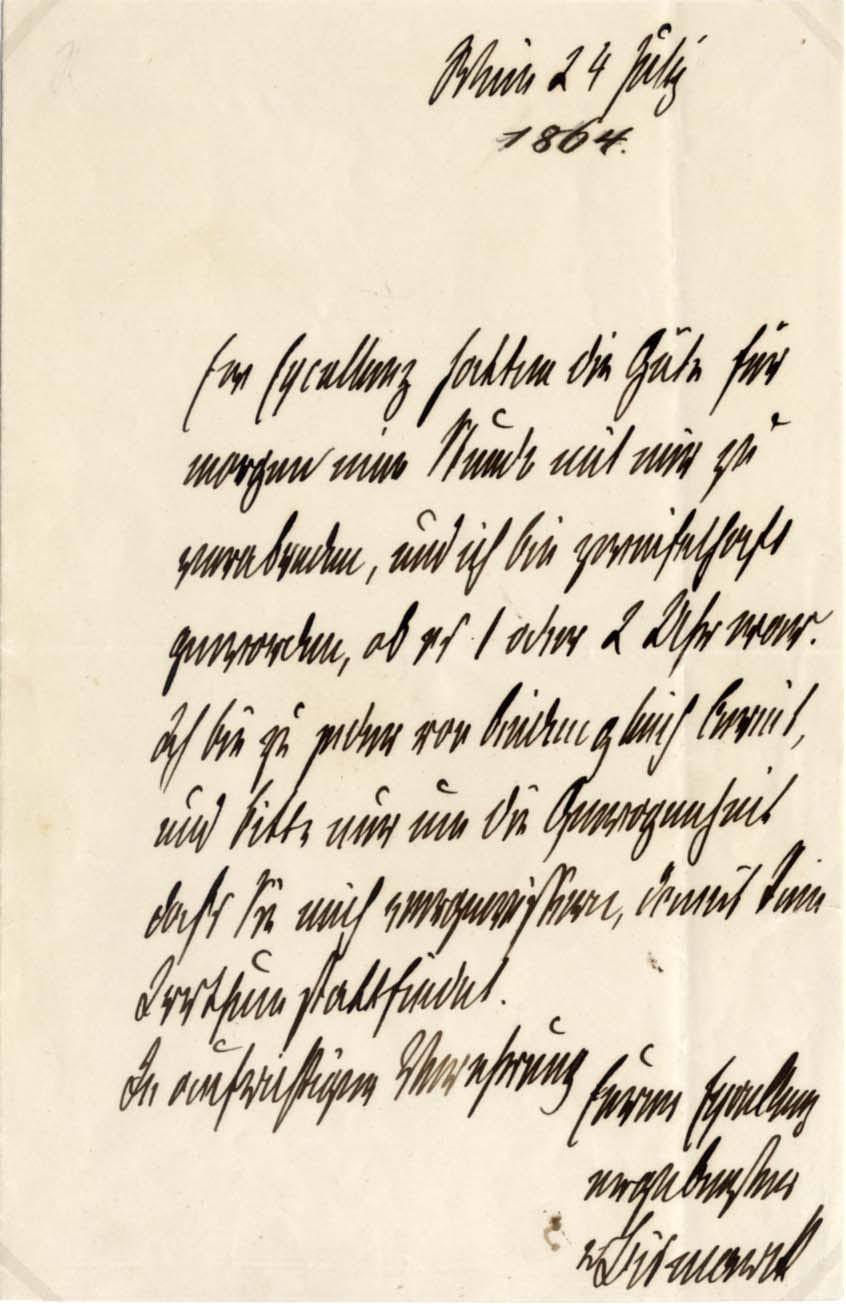 Wien 24 July
1864.
Ew Excellenz hatten die Güte für
morgen eine Stunde mit mir zu
verabreden, und ich bin zweifelhaft
geworden, ob es 1 oder 2 Uhr war.
Ich bin zu jeder von beiden gleich bereit,
und bitte nur um die Gewogenheit
daß Sie mich vergewissern, damit kein
Irrthum stattfindet.
In aufrichtiger Verehrung
Eurer Excellenz
ergebenster
vBismarck